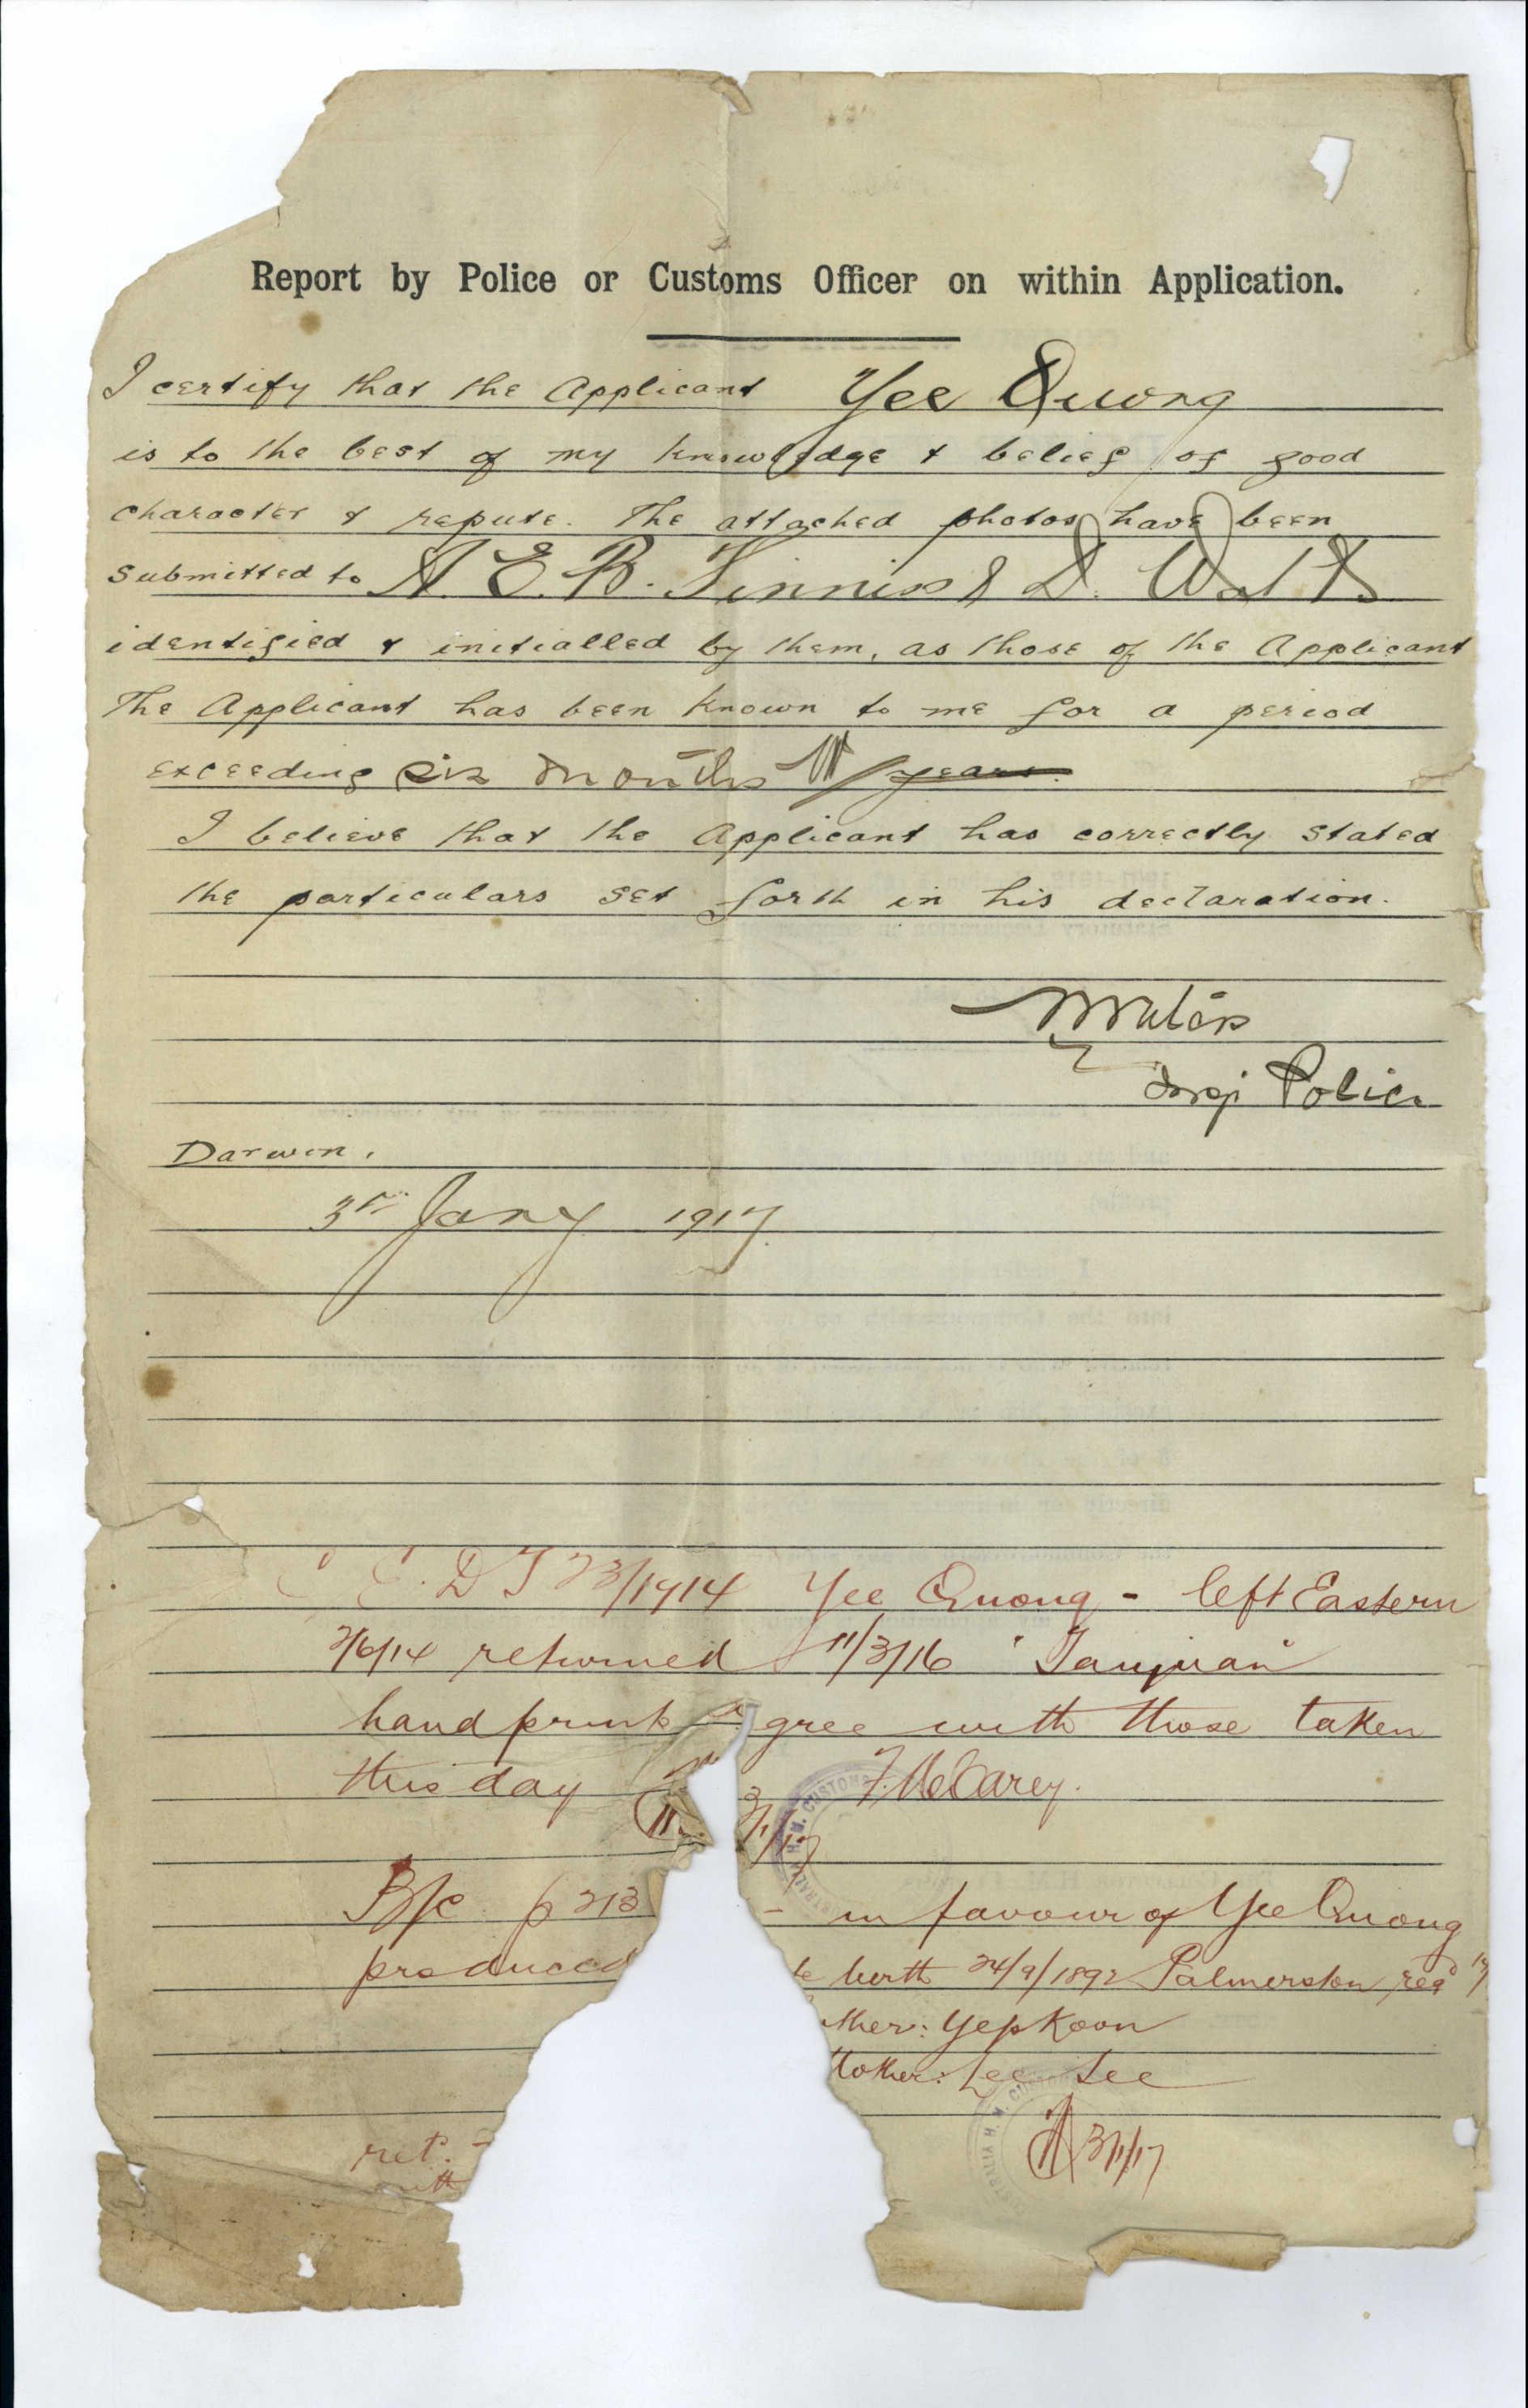 Report by Police or Customs Officer on within Application.
I certify that the Applicant Yee Quong
is to the best of my knowledge & belief of good
character & repute. The attached photos have been
submitted to A. E. B. & D. Watts
identified & initialled by them, as those of the Applicant
The Applicant has been known to me for a period
exceeding six months years.
I believe that the Applicant has correctly stated
the particulars set forth in his declaration.
Police
Darwin.
3rd Jany 1917.
C E. D T 23/1914 Yee Quong - left Eastern
2/6/14 returned 11/3/16 "Taiyuan"
hand prints agree with those taken
this day 3/1/17 F. McCarey.
H. M. CUSTOMS
B/c p 213 - in favour of Yee Quong
produced birth 24/9/1892 Palmerston regd
ather: Yep Koon
other: Lee See
H. M. CU
3/1/17
ret.